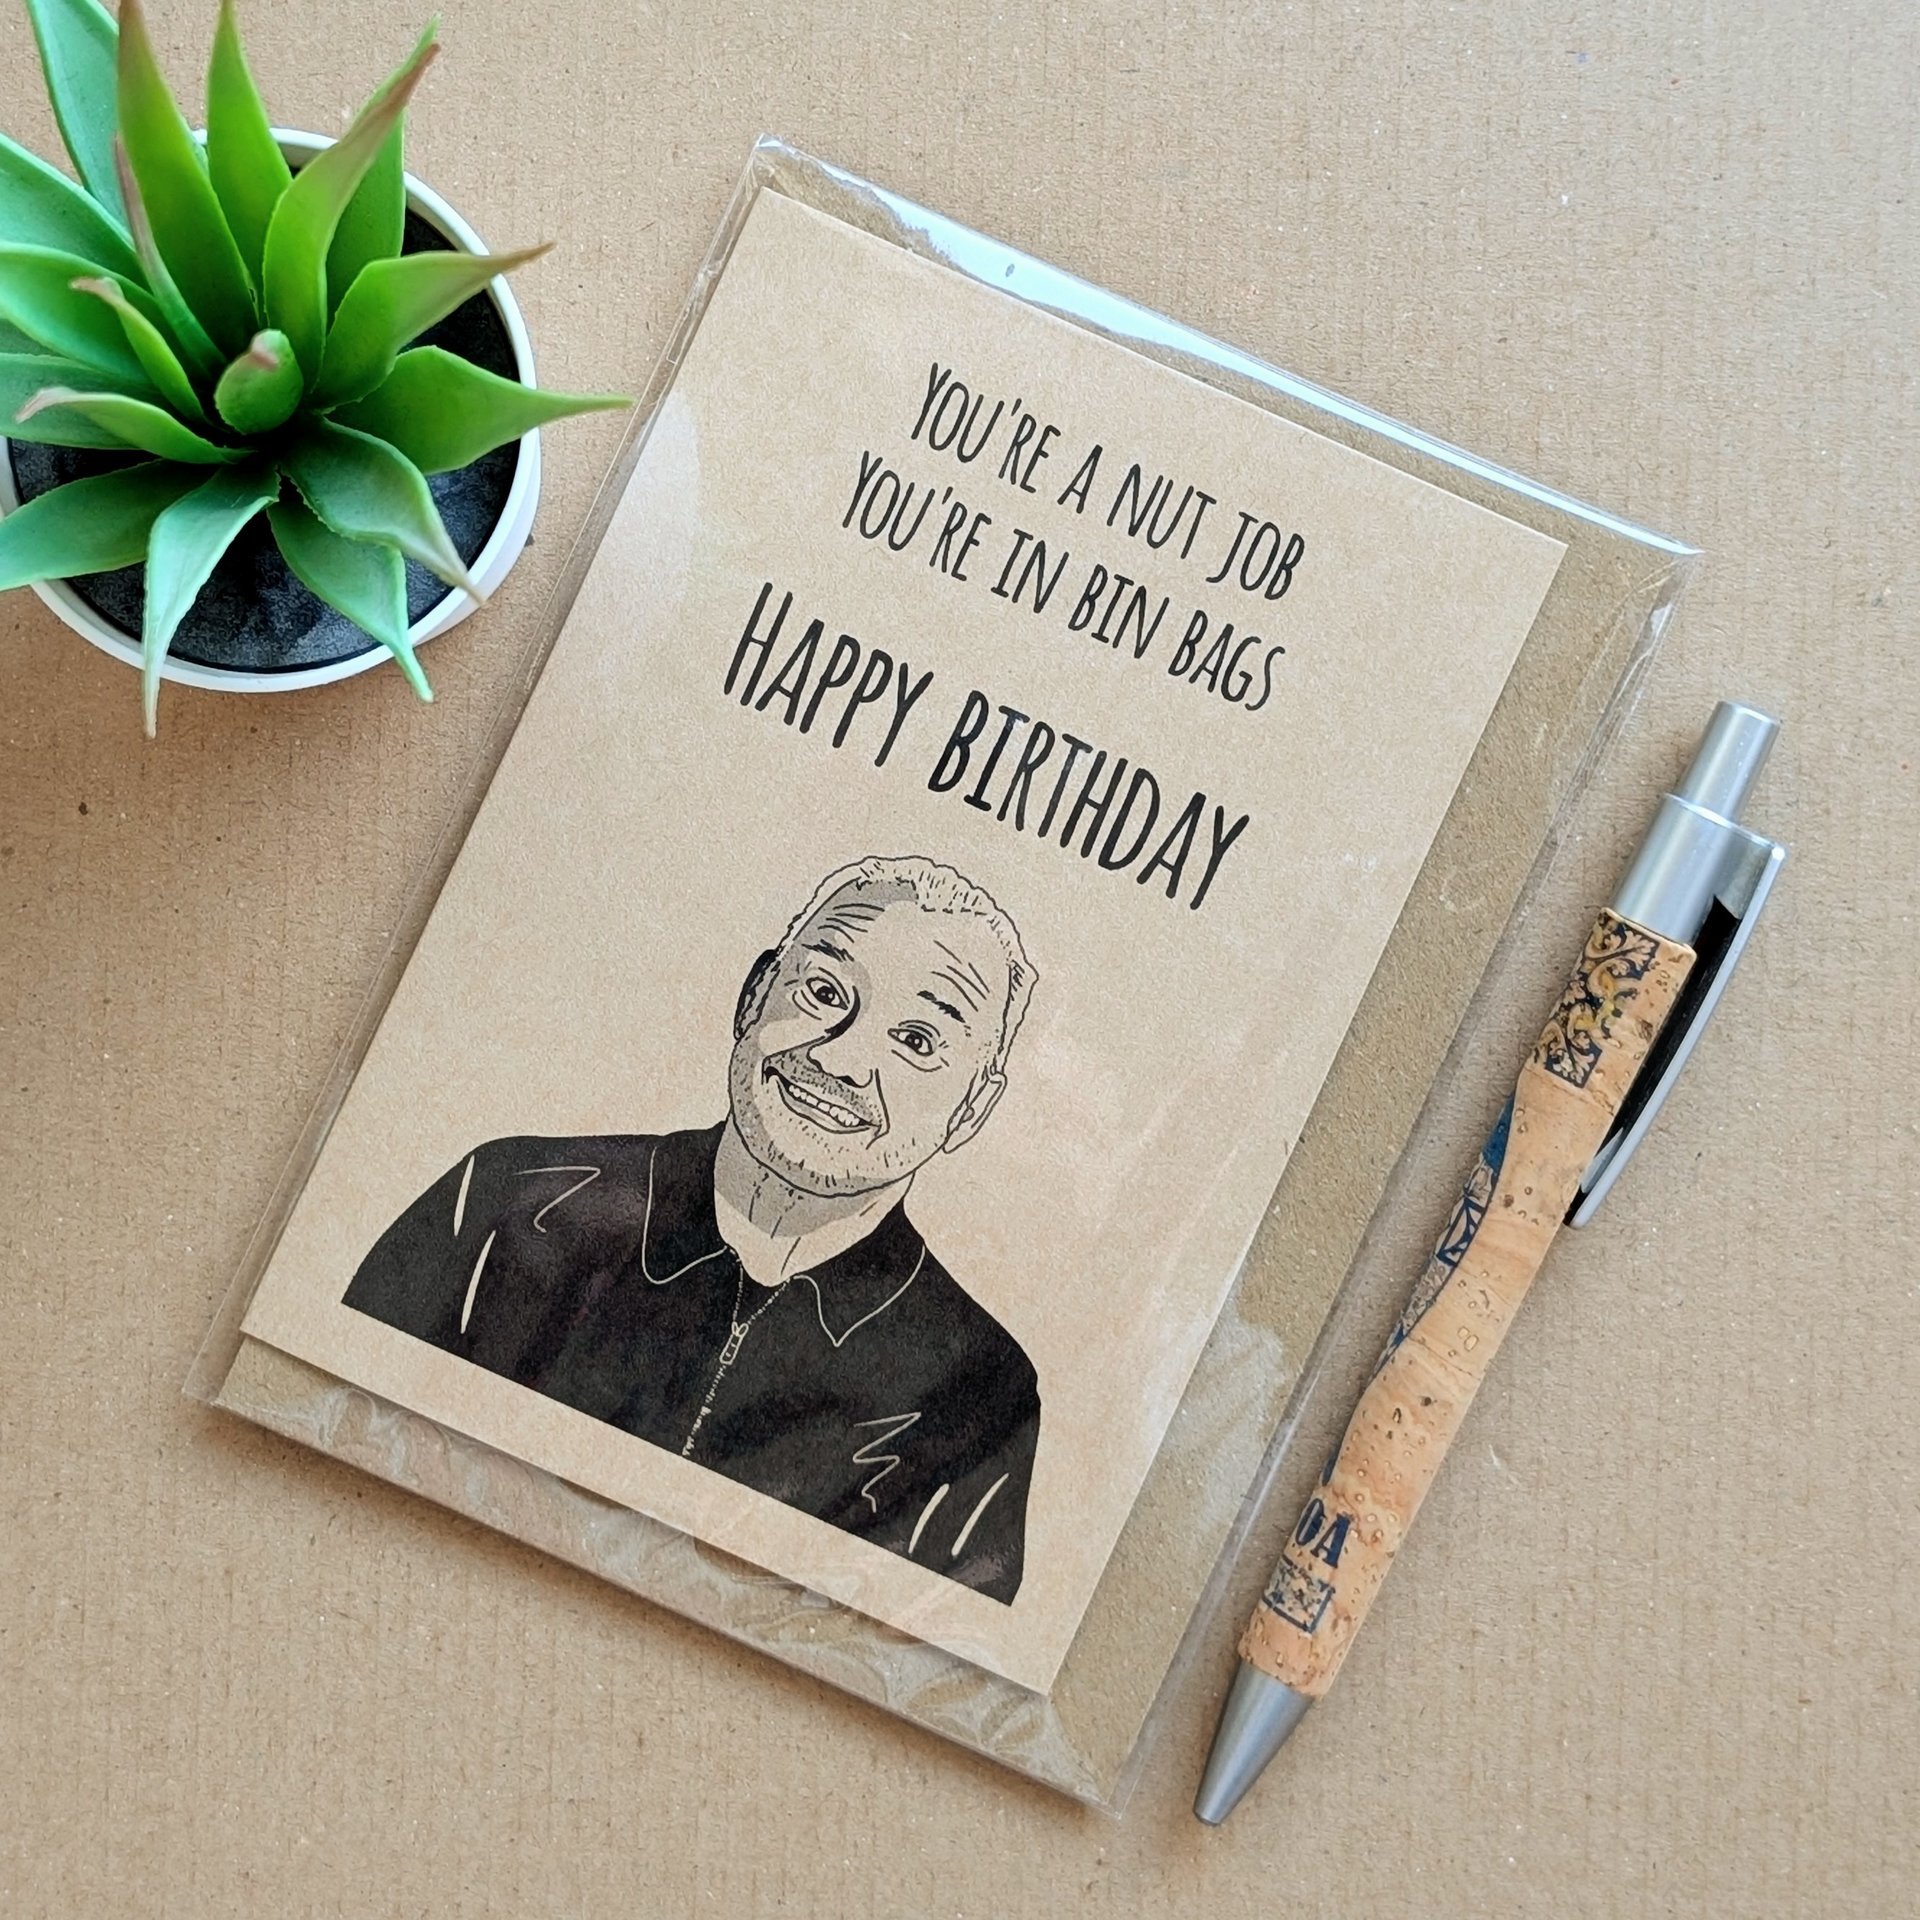 YOU'RE A NUT JOB
YOU'RE IN BIN BAGS
HAPPY BIRTHDAY
OA